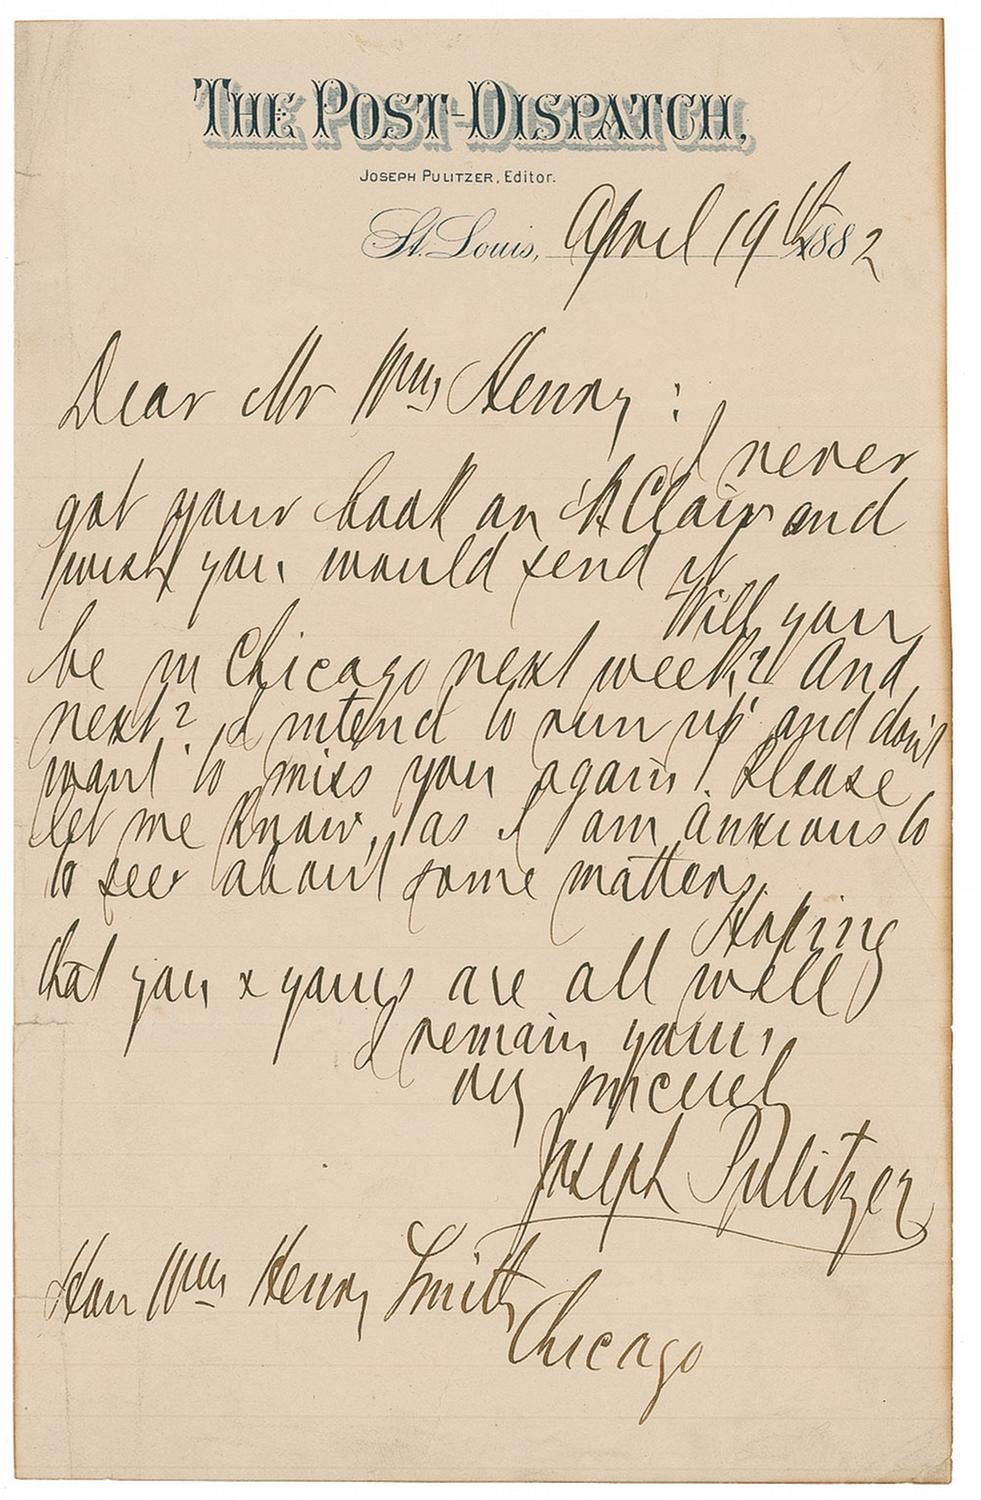 THE POST-DISPATCH,
JOSEPH PULITZER, Editor.
St. Louis, April 19th 1882
Dear Mr Wm Henry :
I never
got your book on St Clair and
wish you would send it
Will you
be in Chicago next week? And
next? I intend to run up and don't
want to miss you again! Please
let me know, as I am anxious to
to see about some matters.
Hoping
that you & yours are all well
I remain yours
sincerely
Joseph Pulitzer
Hon Wm Henry Smith
Chicago